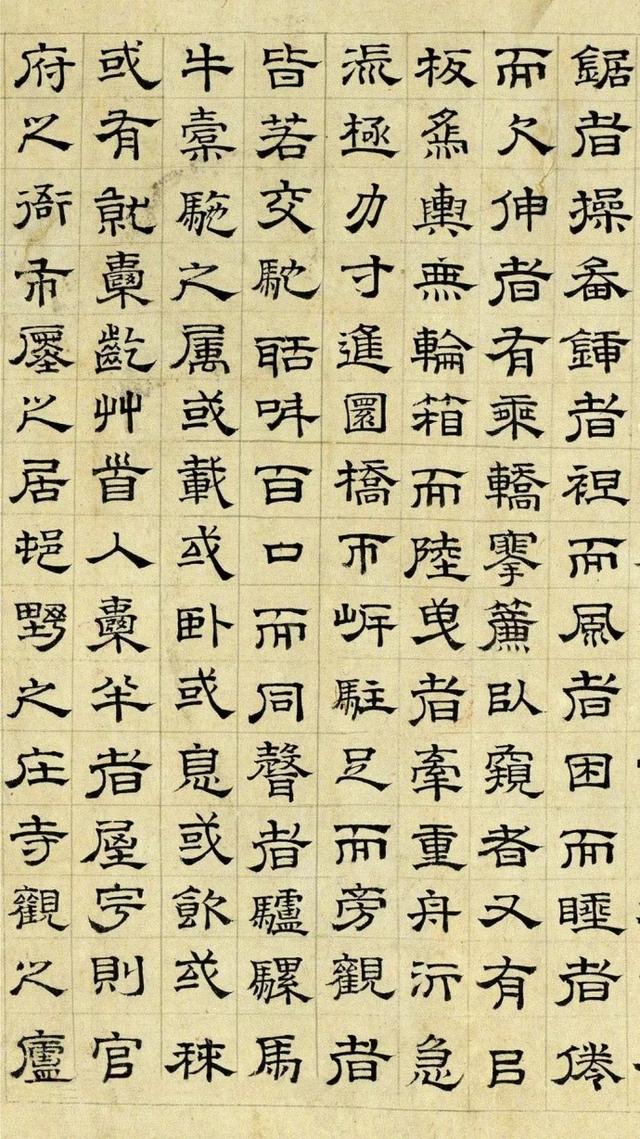 鋸者操畚鍤者袒而風者困而睡者倦
而欠伸者有乘轎搴簾以窺者又有以
板為輿無輪箱而陸曳者牽重舟泝急
流極力寸進圜橋匝岸駐足而旁觀者
皆若交馳聒呌百口而同聲者驢騾馬
牛橐駞之属或載或卧或息或飲或秣
或有就囊齕艸首入囊半者屋宇則官
府之衙市廛之居邨野之庄寺觀之廬